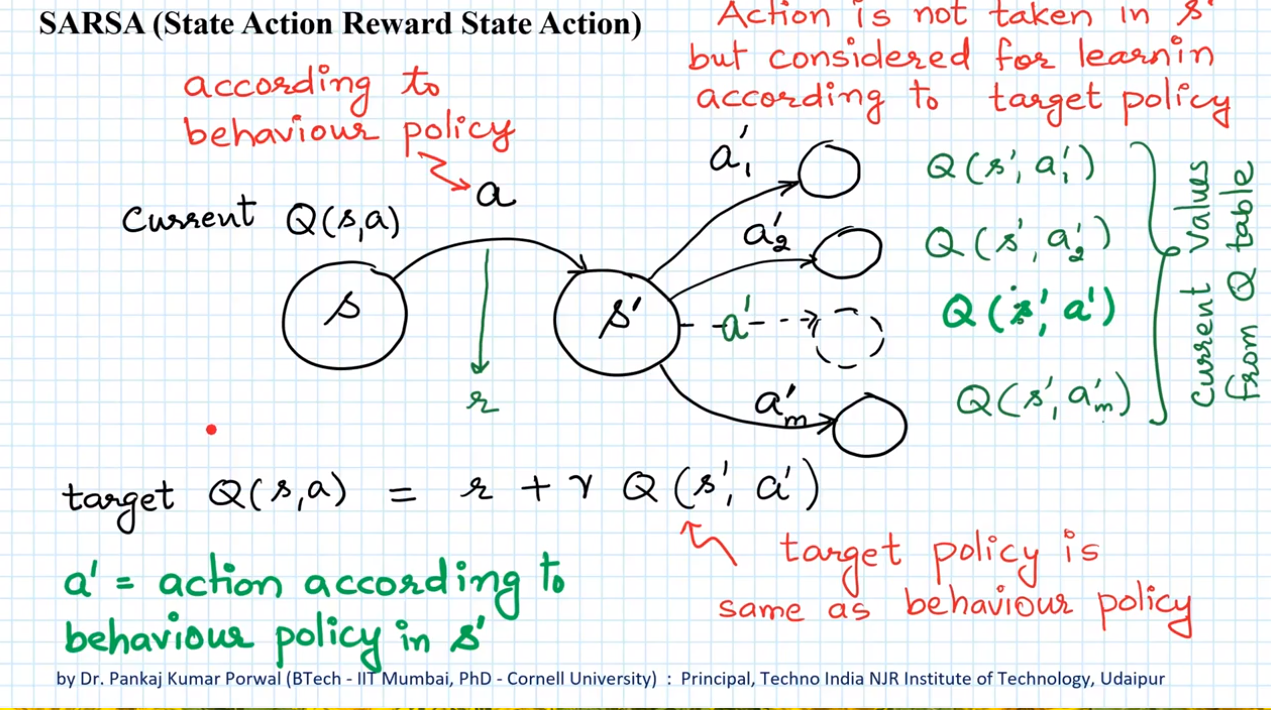 SARSA (State Action Reward State Action)
Action is not taken in s'
but considered for learnin
according to target policy
according to
behaviour policy
a
Current Q(s,a)
s
s'
r
a'₁
a'₂
a'
a'ₘ
Q(s', a'₁)
Q(s', a'₂)
Q(s', a')
Q(s', a'ₘ)
Current values
from Q table
target Q(s,a) = r + γ Q(s', a')
target policy is
same as behaviour policy
a' = action according to
behaviour policy in s'
by Dr. Pankaj Kumar Porwal (BTech - IIT Mumbai, PhD - Cornell University) : Principal, Techno India NJR Institute of Technology, Udaipur